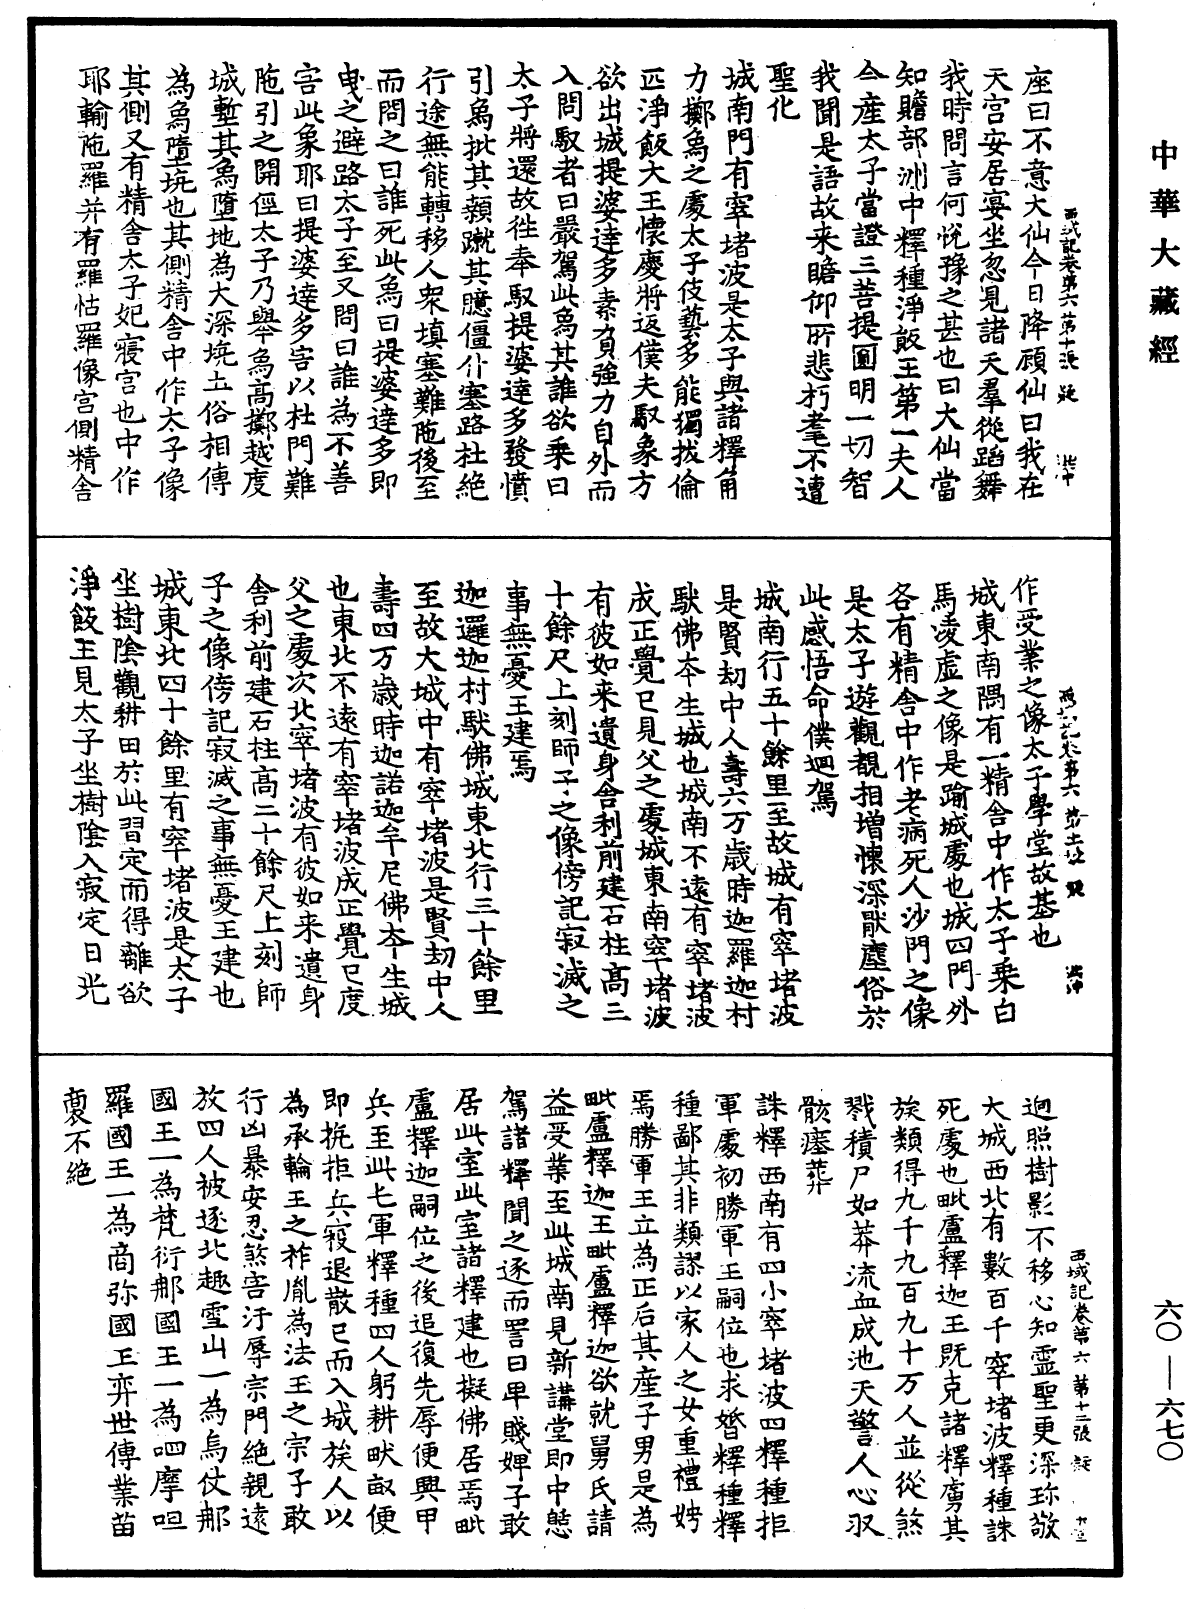 中華大藏經
西域記卷第六 第十張 疑
座曰不意大仙今日降顧仙曰我在
天宫安居宴坐忽見諸天羣從蹈舞
我時問言何悅豫之甚也曰大仙當
知贍部洲中釋種淨飯王第一夫人
今産太子當證三菩提圓明一切智
我聞是語故来瞻仰所悲朽耄不遭
聖化
城南門有窣堵波是太子與諸釋角
力擲象之處太子伎藝多能獨拔倫
匹淨飯大王懷慶將返僕夫馭象方
欲出城提婆達多素負強力自外而
入問馭者曰嚴駕此象其誰欲乗曰
太子將還故徃奉馭提婆達多發憤
引象批其顙蹴其臆僵仆塞路杜絕
行途無能轉移人衆填塞難陁後至
而問之曰誰死此象曰提婆達多即
曳之避路太子至又問曰誰為不善
害此象耶曰提婆達多害以杜門難
陁引之開徑太子乃舉象高擲越度
城塹其象墮地為大深坑土俗相傳
為象墮坑也其側精舍中作太子像
其側又有精舍太子妃寢宫也中作
耶輸陁羅并有羅怙羅像宫側精舍
作受業之像太子學堂故基也
城東南隅有一精舍中作太子乗白
馬凌虚之像是踰城處也城四門外
各有精舍中作老病死人沙門之像
是太子遊觀覩相增懷深厭塵俗於
此感悟命僕迴駕
城南行五十餘里至故城有窣堵波
是賢劫中人壽六万歲時迦羅迦村
馱佛本生城也城南不遠有窣堵波
成正覺已見父之處城東南窣堵波
有彼如来遺身舍利前建石柱高三
十餘尺上刻師子之像傍記寂滅之
事無憂王建焉
迦邏迦村馱佛城東北行三十餘里
至故大城中有窣堵波是賢劫中人
壽四万歲時迦諾迦牟尼佛本生城
也東北不遠有窣堵波成正覺已度
父之處次北窣堵波有彼如来遺身
舍利前建石柱高二十餘尺上刻師
子之像傍記寂滅之事無憂王建也
城東北四十餘里有窣堵波是太子
坐樹陰觀耕田於此習定而得離欲
淨飯王見太子坐樹陰入寂定日光
西域記卷第六 第十二張 疑
迴照樹影不移心知靈聖更深珎敬
大城西北有數百千窣堵波釋種誅
死處也毗盧釋迦王既克諸釋虜其
族類得九千九百九十万人並從煞
戮積尸如莽流血成池天警人心収
骸瘞葬
誅釋西南有四小窣堵波四釋種拒
軍處初勝軍王嗣位也求婚釋種釋
種鄙其非類謬以家人之女重禮娉
焉勝軍王立為正后其産子男是為
毗盧釋迦王毗盧釋迦欲就舅氏請
益受業至此城南見新講堂即中憩
駕諸釋聞之逐而詈曰卑賤婢子敢
居此室此室諸釋建也擬佛居焉毗
盧釋迦嗣位之後追復先辱便興甲
兵至此屯軍釋種四人躬耕畎畝便
即抗拒兵寇退散已而入城族人以
為承輪王之祚胤為法王之宗子敢
行凶暴安忍煞害汙辱宗門絶親遠
放四人被逐北趣雪山一為烏仗那
國王一為梵衍那國王一為呬摩呾
羅國王一為商弥國王弈世傳業苗
裔不絶
六〇—六七〇